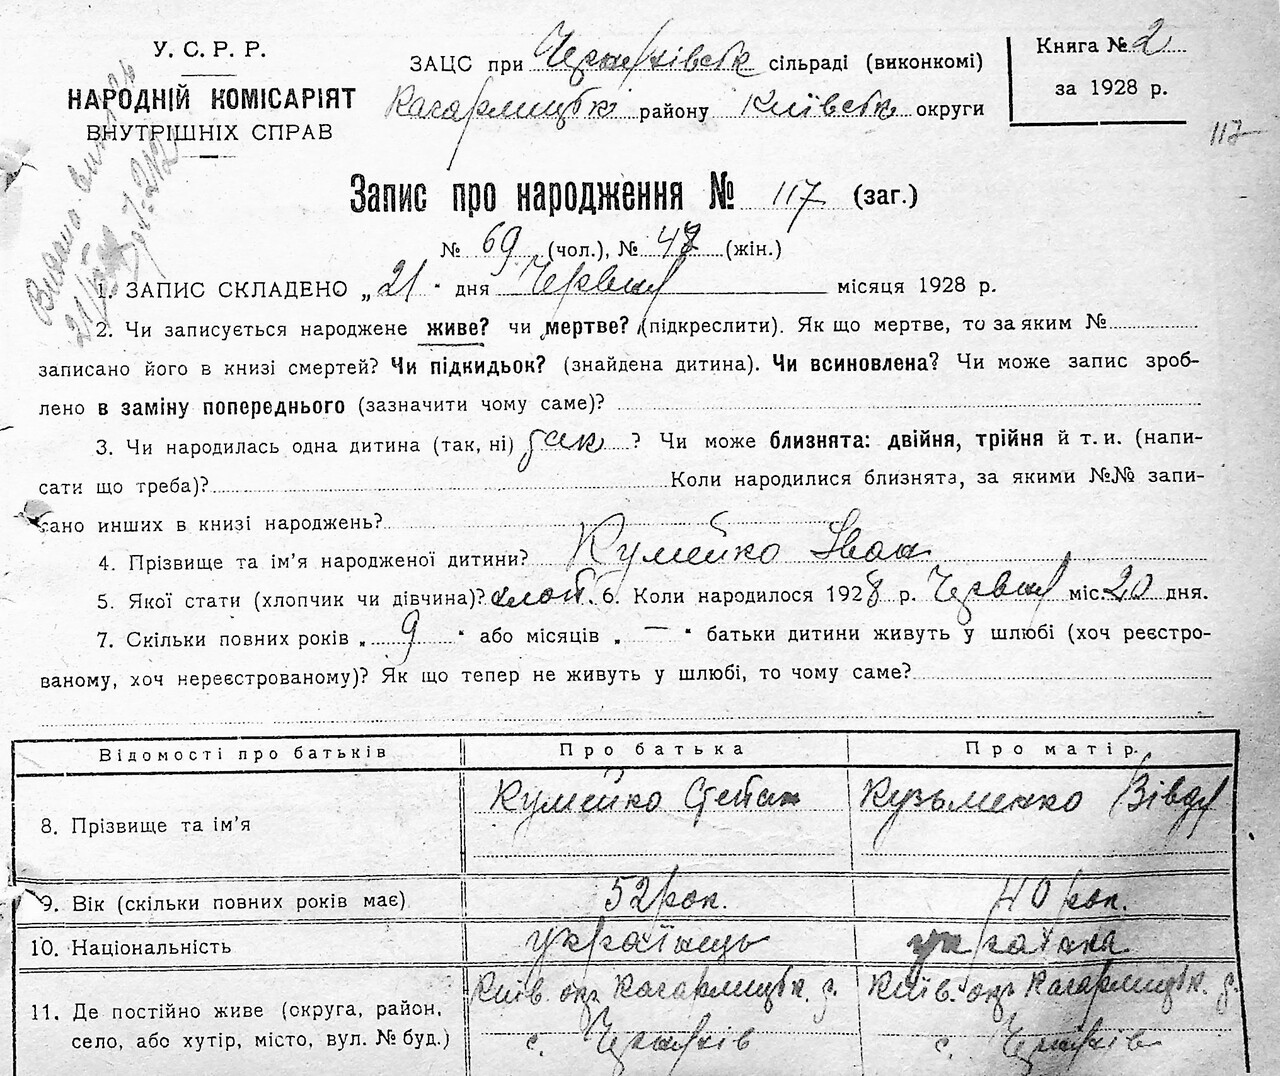 У. С. Р. Р.
НАРОДНІЙ КОМІСАРІЯТ
ВНУТРІШНІХ СПРАВ
ЗАЦС при Черняхівськ сільраді (виконкомі)
Кагарлицькі району Київськ округи
Книга № 2
за 1928 р.
117
Видано
Запис про народження № 117 (заг.)
№ 69 (чол.), № 48 (жін.)
1. ЗАПИС СКЛАДЕНО „21“ дня Червня місяця 1928 р.
2. Чи записується народжене живе? чи мертве? (підкреслити). Як що мертве, то за яким №
записано його в книзі смертей? Чи підкидьок? (знайдена дитина). Чи всиновлена? Чи може запис зроб-
лено в заміну попереднього (зазначити чому саме)?
3. Чи народилась одна дитина (так, ні) так ? Чи може близнята: двійня, трійня й т. и. (напи-
сати що треба)? Коли народилися близнята, за якими №№ запи-
сано инших в книзі народжень?
4. Прізвище та ім’я народженої дитини? Кумейко Іван
5. Якої стати (хлопчик чи дівчина)? хлоп. 6. Коли народилося 1928 р. Червня міс. 20 дня.
7. Скільки повних років „ 9 “ або місяців „ — “ батьки дитини живуть у шлюбі (хоч реєстро-
ваному, хоч нереєстрованому)? Як що тепер не живуть у шлюбі, то чому саме?
Відомості про батьків Про батька Про матір
8. Прізвище та ім’я Кумейко Степан Кузьменко Вівдя
9. Вік (скільки повних років має) 52 рок. 40 рок.
10. Національність українець українка
11. Де постійно живе (округа, район, Київ. окр Кагарлицьк. р. Київ. окр Кагарлицьк. р.
село, або хутір, місто, вул. № буд.) с. Черняхів с. Черняхів